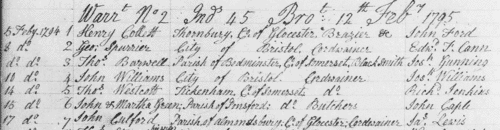 Warrt No 2 Ind 45 Brot 12th Feby 1795
5 Feby 1794 1 Henry Collett Thornbury, Co of Glocester Brazier & John Ford
8 do 2 Geo Spurrier City of Bristol Cordwainer Edwd T. Cann
do do 3 Thos Barwell Parish of Bedminster, C. of Somerset, Black Smith Jos Gunning
10 do 4 John Williams City of Bristol Cordwainer Jos Williams
14 do 5 Thos Westcott Tickenham, C. of Somerset do Richd Jenkins
16 do 6 John & Martha Green, Parish of do Butchers John Caple
17 do 7 John Culford Parish of Almondsbury, C. of Glocester, Cordwainer Jas Lewis